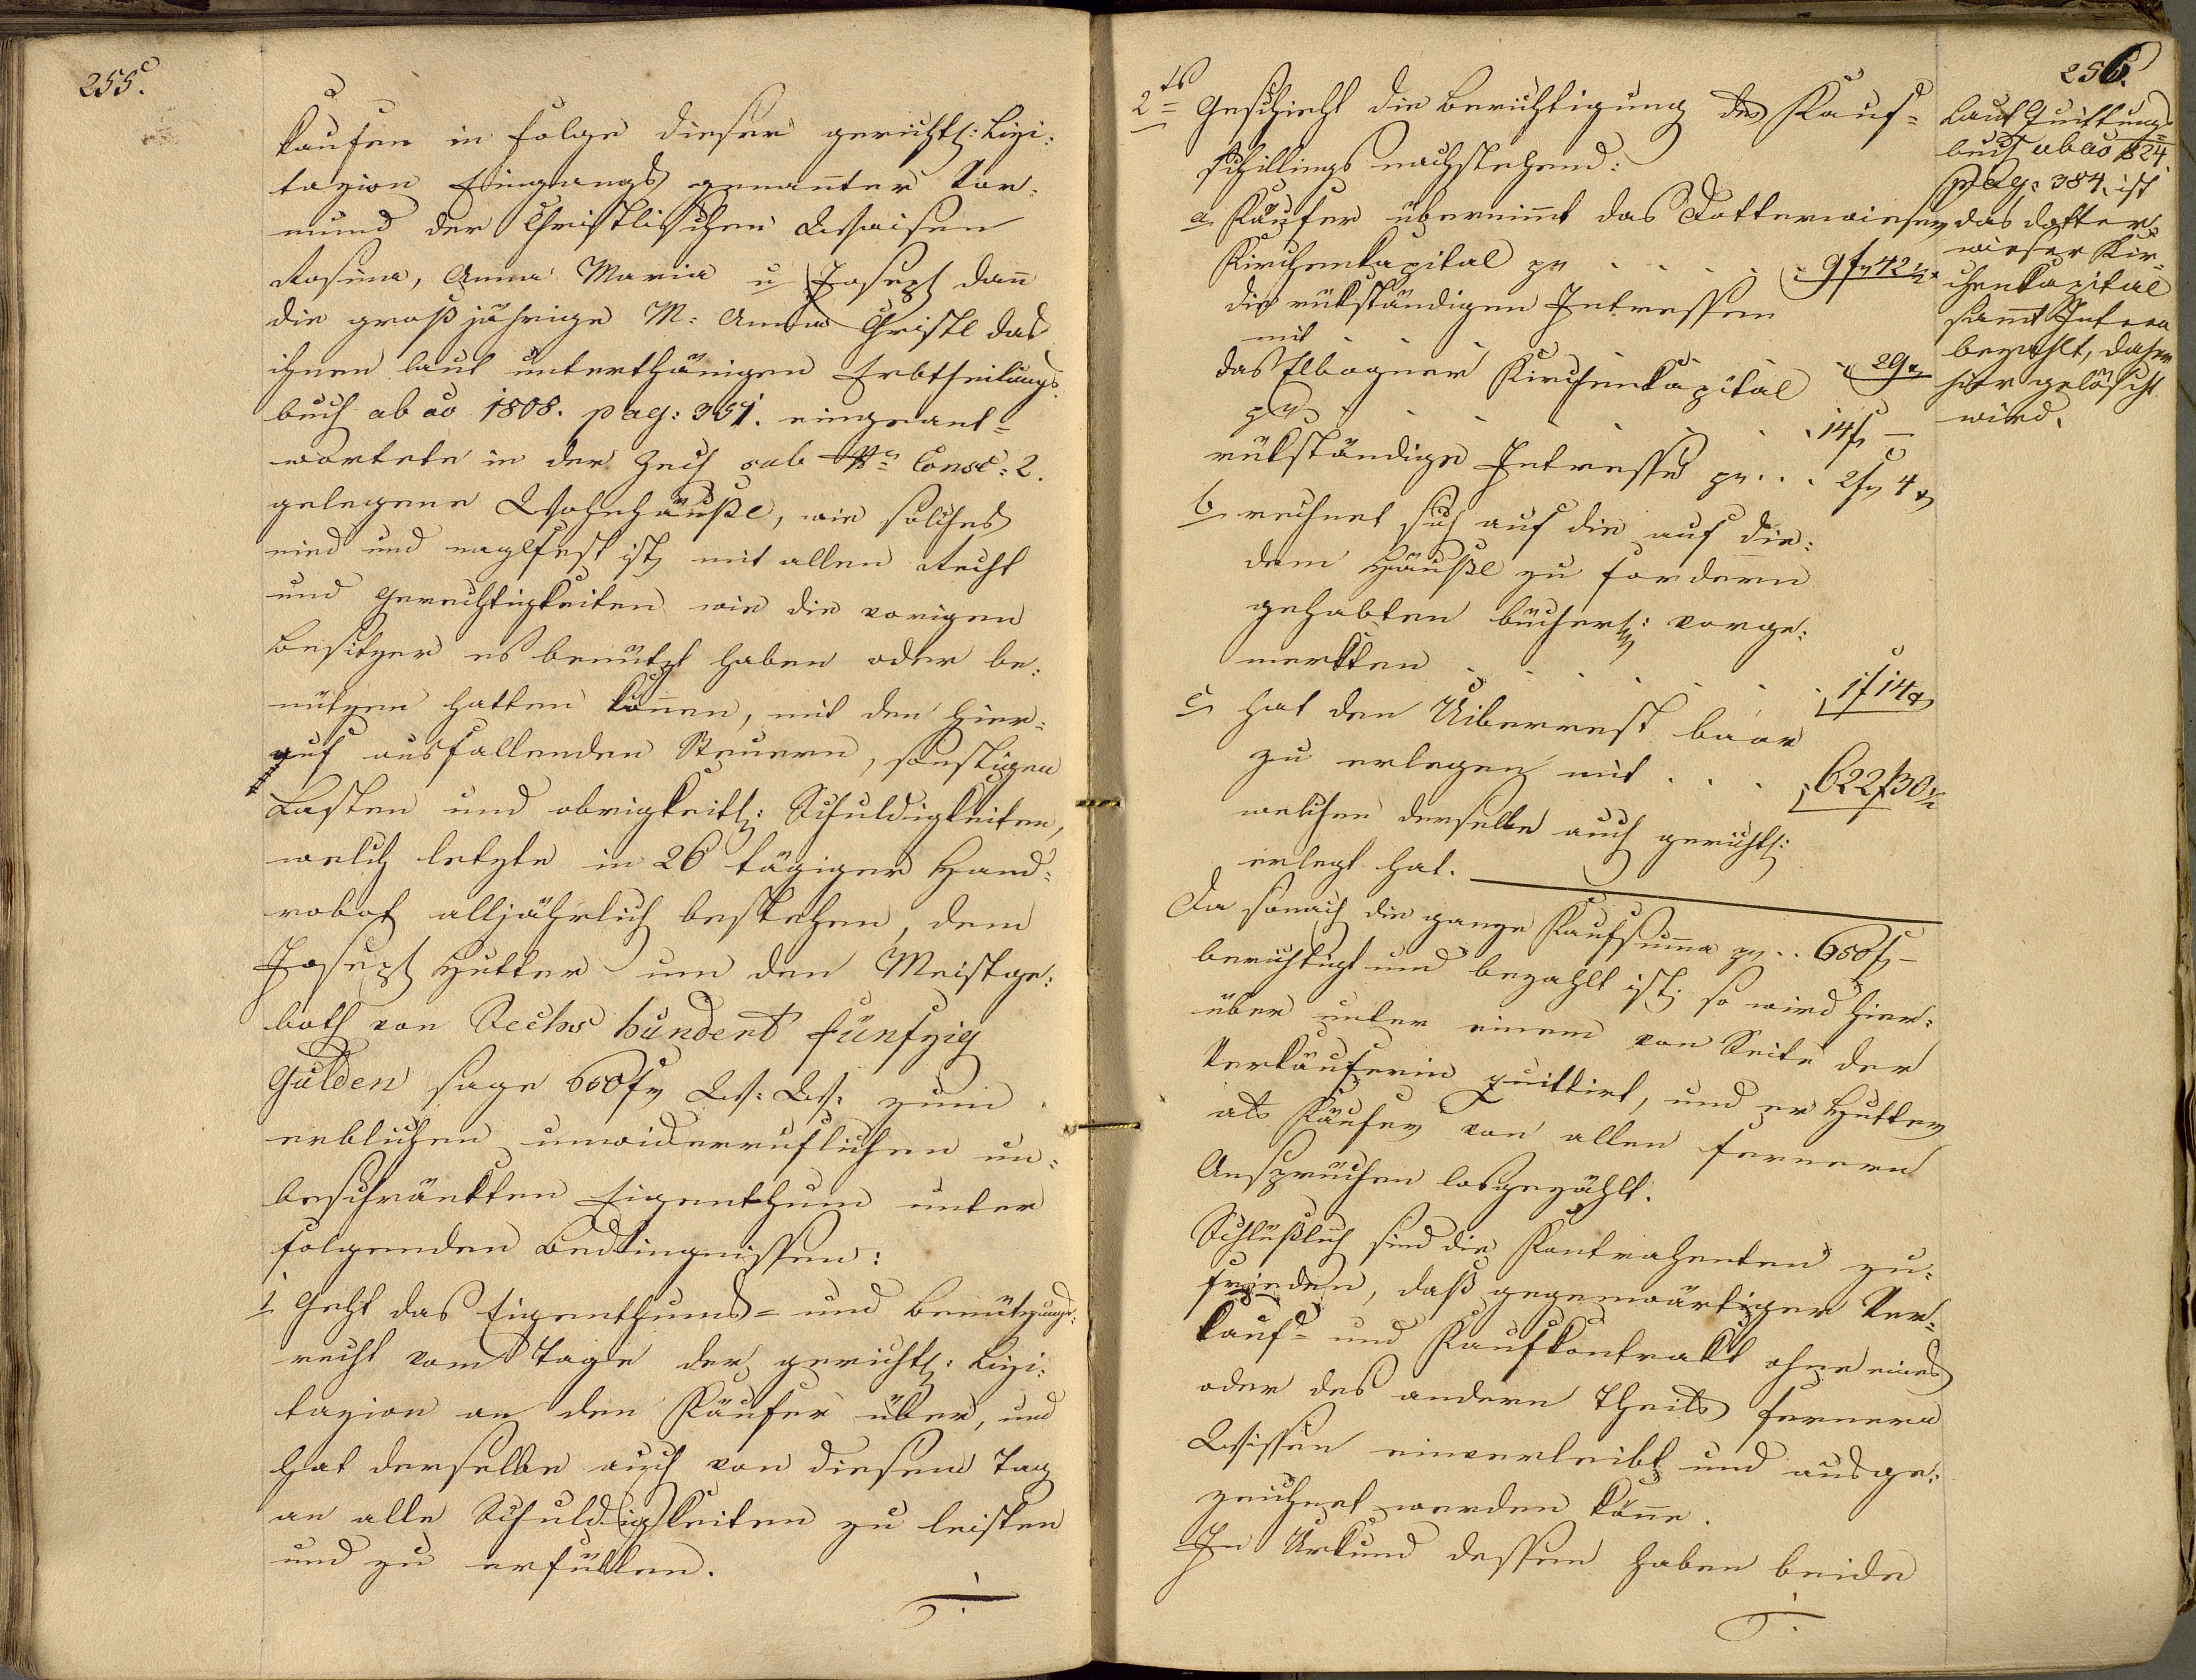 255.
kaufen in Folge dieser gerichtl: Lizi:
tazion Eingangs genannter Vor:
mund der Christlischen Waisen
Rosina, Anna Maria u Joseph dann
die großjährige M: Anna Christl das
ihnen laut unterthänigen Erbtheilungs
buch ab ao 1808. pag: 351. eingeant=
wortete in der Zech sub Nro Consc: 2.
gelegene Wohnhäußl, wie solches
nied und naglfest ist, mit allen Recht
und Gerechtigkeiten wie die vorigen
Besitzer es benützt haben oder be:
nützen hatten können, mit den hier=
auf ausfallenden Steuern, sonstigen
Lasten und obrigkeitl: Schuldigkeiten,
welch letzte in 26 tägiger Hand=
robot alljährlich bestehen, dem
Joseph Hutter um den Meistge:
both von Sechs hundert fünfzig
Gulden sage 650 f W: W: zum
erblichen unwiderruflichen un=
beschränkten Eigenthum unter
folgenden Bedingnissen:
1 Geht das Eigenthums= und Benützungs=
recht vom Tage der gerichtl: Lizi:
tazion an den Käufer über, und
hat derselbe auch von diesem Tag
an alle Schuldigkeiten zu leisten
und zu erfüllen.
256.
2tens Geschieht die Berichtigung des Kauf=
schillings nachstehend:
a Käufer übernimmt das Dotterwieser
Kirchenkapital pr . . . . . 9 f 42 1/2 x
die rükständigen Intressen
mit . . . . . 29 x
das Elbogner Kirchenkapital
pr . . . . . 14 f —
rükständige Intresse pr . . . 2 f 4 x
b rechnet sich auf die auf die:
dem Häußl zu fordern
gehabten bücherl: vorge:
merkten . . . . . 1 f 14 x
c hat den Uiberrest baar
zu erlegen mit . . . 622 f 30 1/2
welchen derselbe auch gerichtl:
erlegt hat.
Da sonach die ganze Kaufsumma pr . . 650 f —
berichtigt und bezahlt ist; so wird hier=
über unter einem von Seite der
Verkäuferin quittirt, und er Hutter
als Käufer von allen fernern
Ansprüchen losgezählt.
Schlüßlich sind die Kontrahenten zu=
frieden, daß gegenwärtiger Ver=
kauf= und Kaufkontrakt ohne eines
oder des andern Theils fernern
Wissen einverleibt und ausge:
zeichnet werden könne.
In Urkund dessen haben beide
Laut Quittungs=
buch ab ao 824
pag: 384. ist
das Dotter=
wieser Kir=
chenkapital
sammt Intren
bezahlt, daher
hier gelöscht
wird.